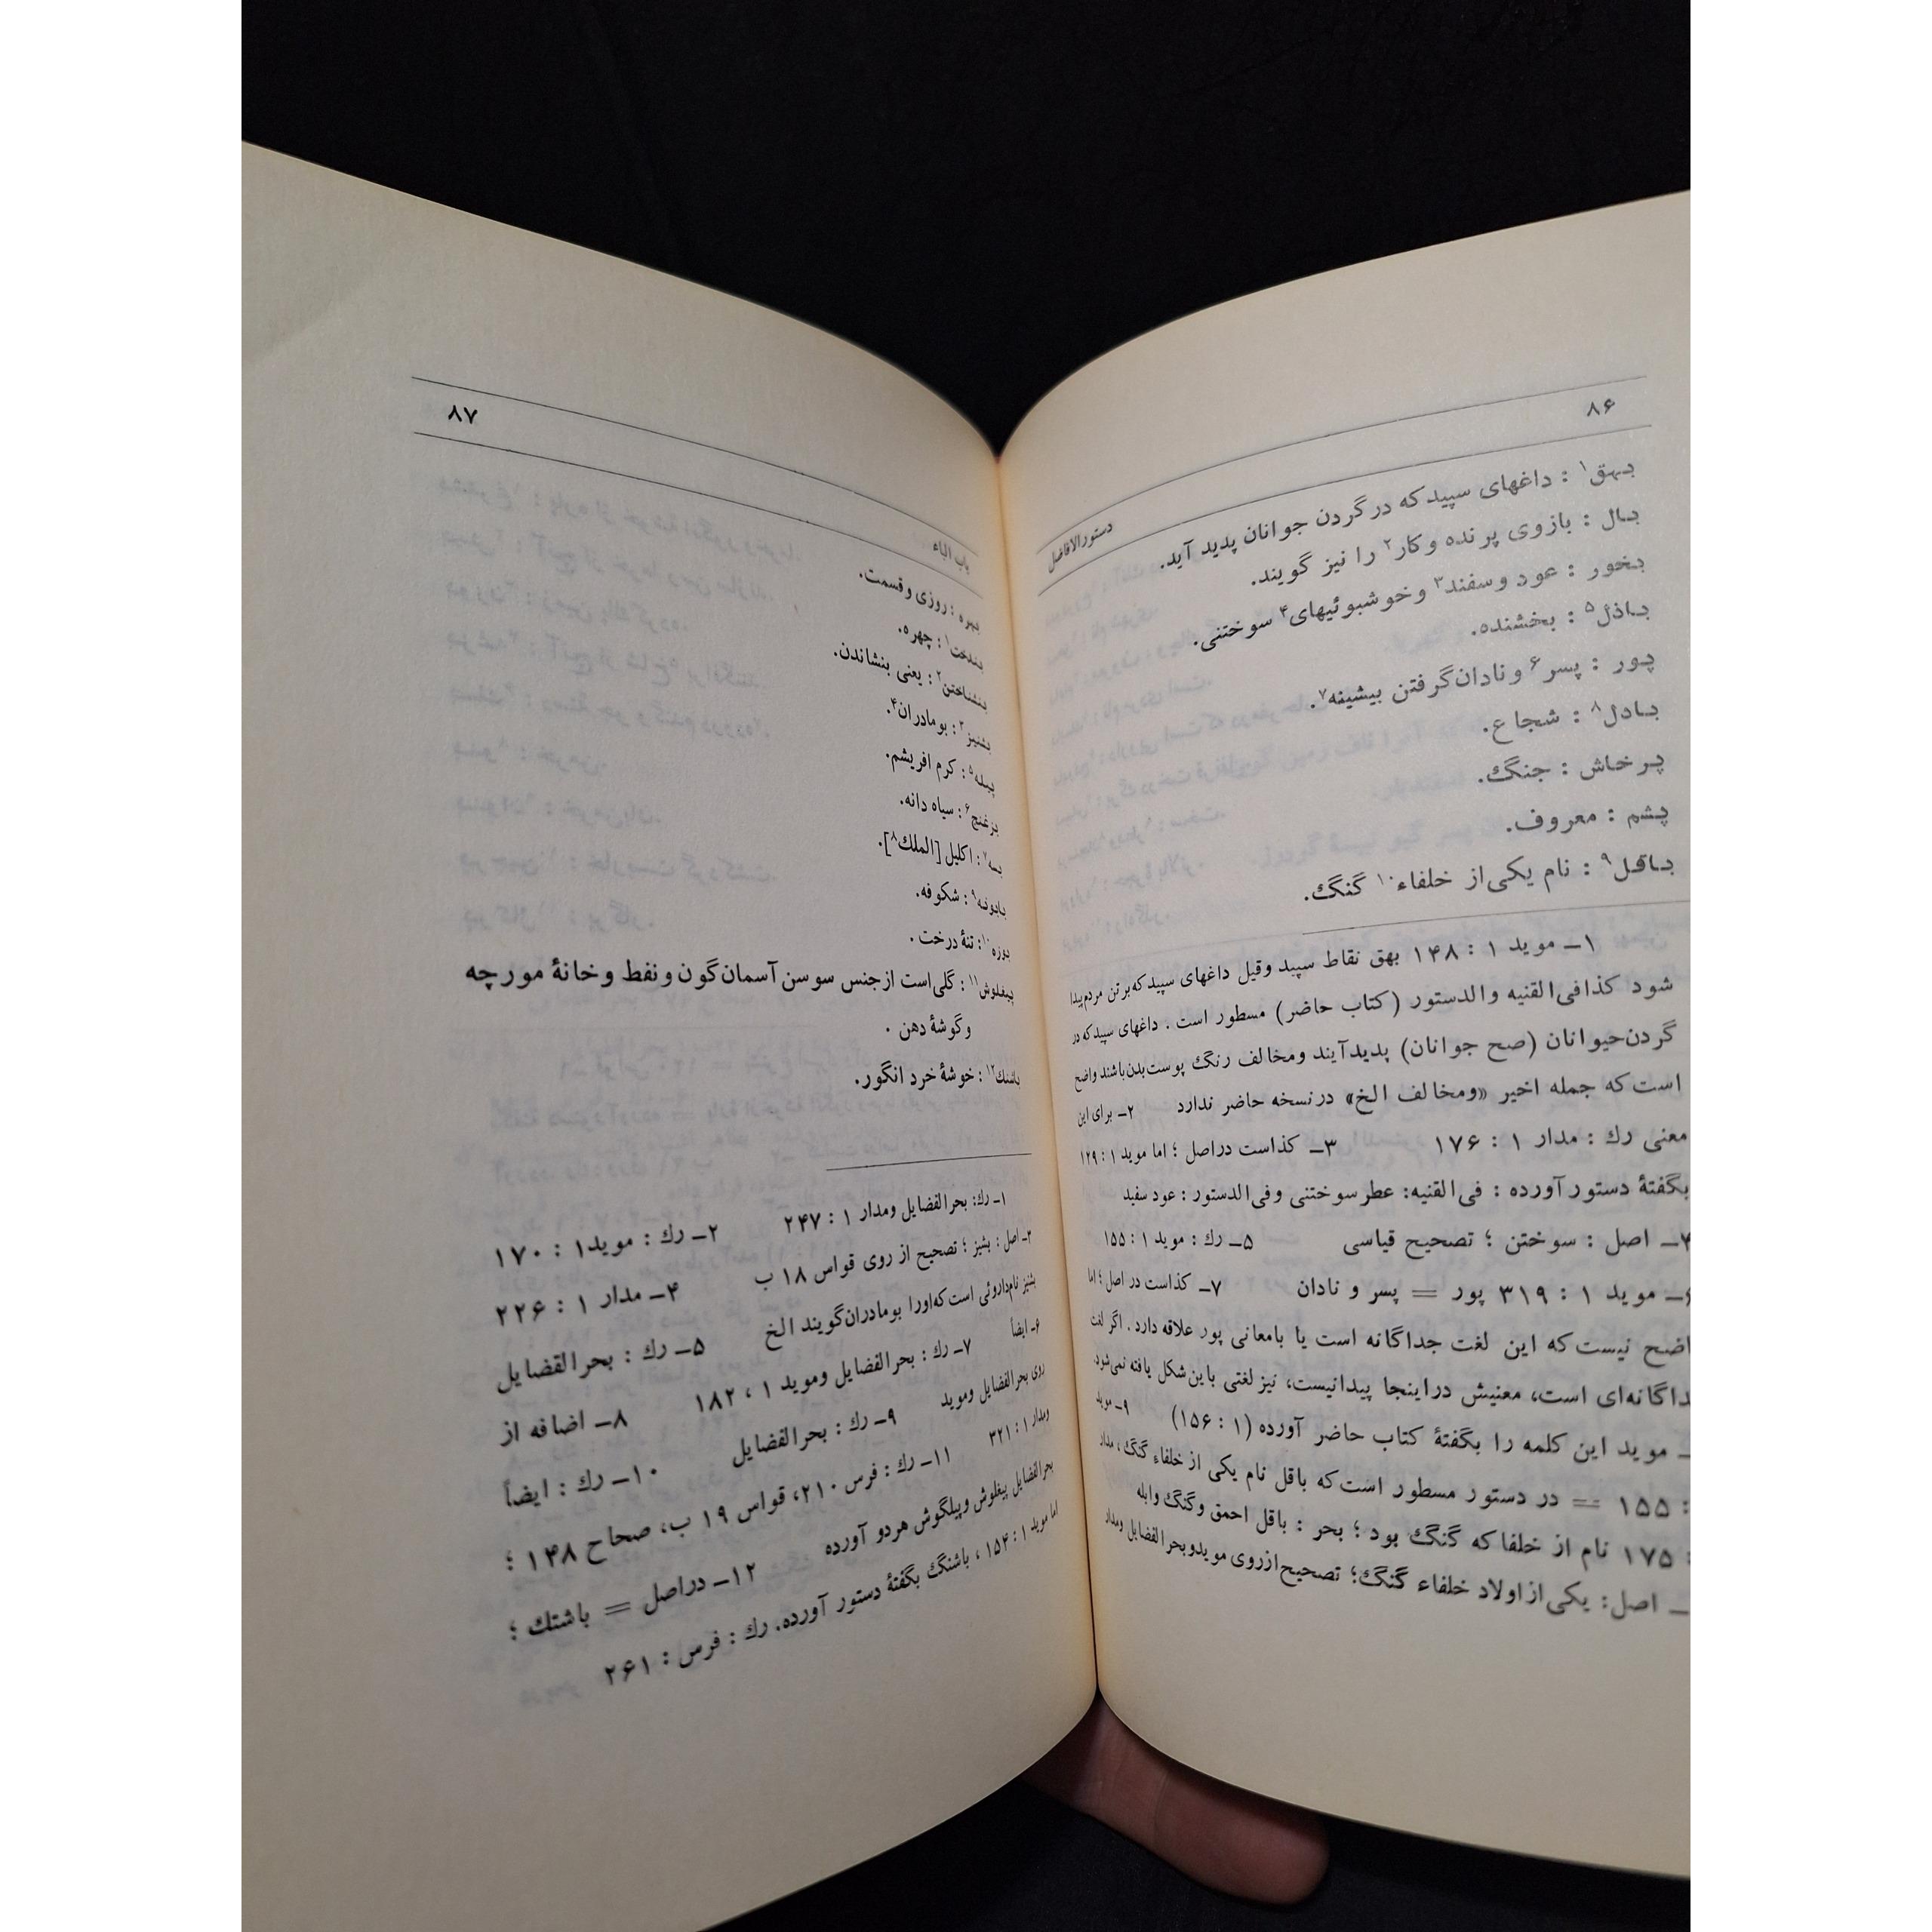 ۸۶
دستورالافاضل
بهق۱ : داغهای سپید که در گردن جوانان پدید آید.
بال : بازوی پرنده و کار۲ را نیز گویند.
بخور : عود و سفند۳ و خوشبوئیهای۴ سوختنی.
باذل۵ : بخشنده.
پور : پسر۶ و نادان گرفتن بیشینه۷.
بادل۸ : شجاع.
پرخاش : جنگ.
پشم : معروف.
باقل۹ : نام یکی از خلفاء۱۰ گنگ.
۱ــ موید ۱ : ۱۴۸ بهق نقاط سپید وقیل داغهای سپید که بر تن مردم پیدا
شود کذا فی القنیه والدستور (کتاب حاضر) مسطور است . داغهای سپید که در
گردن حیوانان (صح جوانان) پدید آیند ومخالف رنگ پوست بدن باشند واضح
است که جمله اخیر «ومخالف الخ» در نسخه حاضر ندارد ۲ــ برای این
معنی رك : مدار ۱ : ۱۷۶ ۳ــ کذاست دراصل ؛ اما موید ۱ : ۱۲۹
بگفتهٔ دستور آورده : فی القنیه: عطر سوختنی وفی الدستور : عود سفید
۴ــ اصل : سوختن ؛ تصحیح قیاسی ۵ــ رك : موید ۱ : ۱۵۵
۶ــ موید ۱ : ۳۱۹ پور = پسر و نادان ۷ــ کذاست در اصل ؛ اما
اضح نیست که این لغت جداگانه است یا بامعانی پور علاقه دارد . اگر لغت
داگانه‌ای است، معنیش دراینجا پیدانیست، نیز لغتی باین شکل یافته نمی‌شود.
ــ موید این کلمه را بگفتهٔ کتاب حاضر آورده (۱ : ۱۵۶) ۹ــ موید
: ۱۵۵ = در دستور مسطور است که باقل نام یکی از خلفاء گنگ ، مدار
: ۱۷۵ نام از خلفا که گنگ بود ؛ بحر : باقل احمق وگنگ وابله
ــ اصل: یکی از اولاد خلفاء گنگ؛ تصحیح ازروی موید و بحرالفضایل ومدار
باب الباء
۸۷
بهره : روزی و قسمت.
۱ : چهره.
بنشناختن۲ : یعنی بنشاندن.
بشنیز۳ : بومادران۴.
پیله۵ : کرم افریشم.
بزغنج۶ : سیاه دانه.
بسه۷ : اکلیل [الملك۸].
بابونه۹ : شکوفه.
بوزه۱۰ : تنهٔ درخت .
پیغلوش۱۱ : گلی است از جنس سوسن آسمان گون و نفط و خانهٔ مورچه
وگوشهٔ دهن .
باشنك۱۲ : خوشهٔ خرد انگور.
۱ــ رك: بحرالفضایل ومدار ۱ : ۲۴۷ ۲ــ رك : موید۱ : ۱۷۰
۳ــ اصل : بشیز ؛ تصحیح از روی قواس ۱۸ ب ۴ــ مدار ۱ : ۲۲۶
بشنیز نام‌داروئی است که‌اورا بومادران گویند الخ ۵ــ رك : بحرالفضایل
۶ــ ایضاً ۷ــ رك : بحرالفضایل وموید ۱ ، ۱۸۲ ۸ــ اضافه از
روی بحرالفضایل وموید ۹ــ رك : بحرالفضایل ۱۰ــ رك : ایضاً
ومدار ۱ : ۳۲۱ ۱۱ــ رك : فرس ۲۱۰، قواس ۱۹ ب، صحاح ۱۴۸ ؛
بحرالفضایل پیغلوش وپیلگوش هردو آورده ۱۲ــ دراصل = باشتك ؛
اما موید ۱ : ۱۵۴ ، باشنگ بگفتهٔ دستور آورده. رك : فرس : ۲۶۱